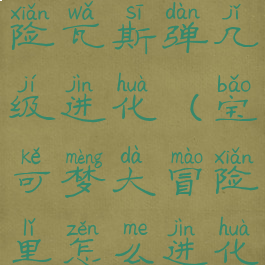 xiǎn wǎ sī dàn jǐ
险瓦斯弹几
jí jìn huà bǎo
级进化（宝
kě mèng dà mào xiǎn
可梦大冒险
lǐ zěn me jìn huà
里怎么进化